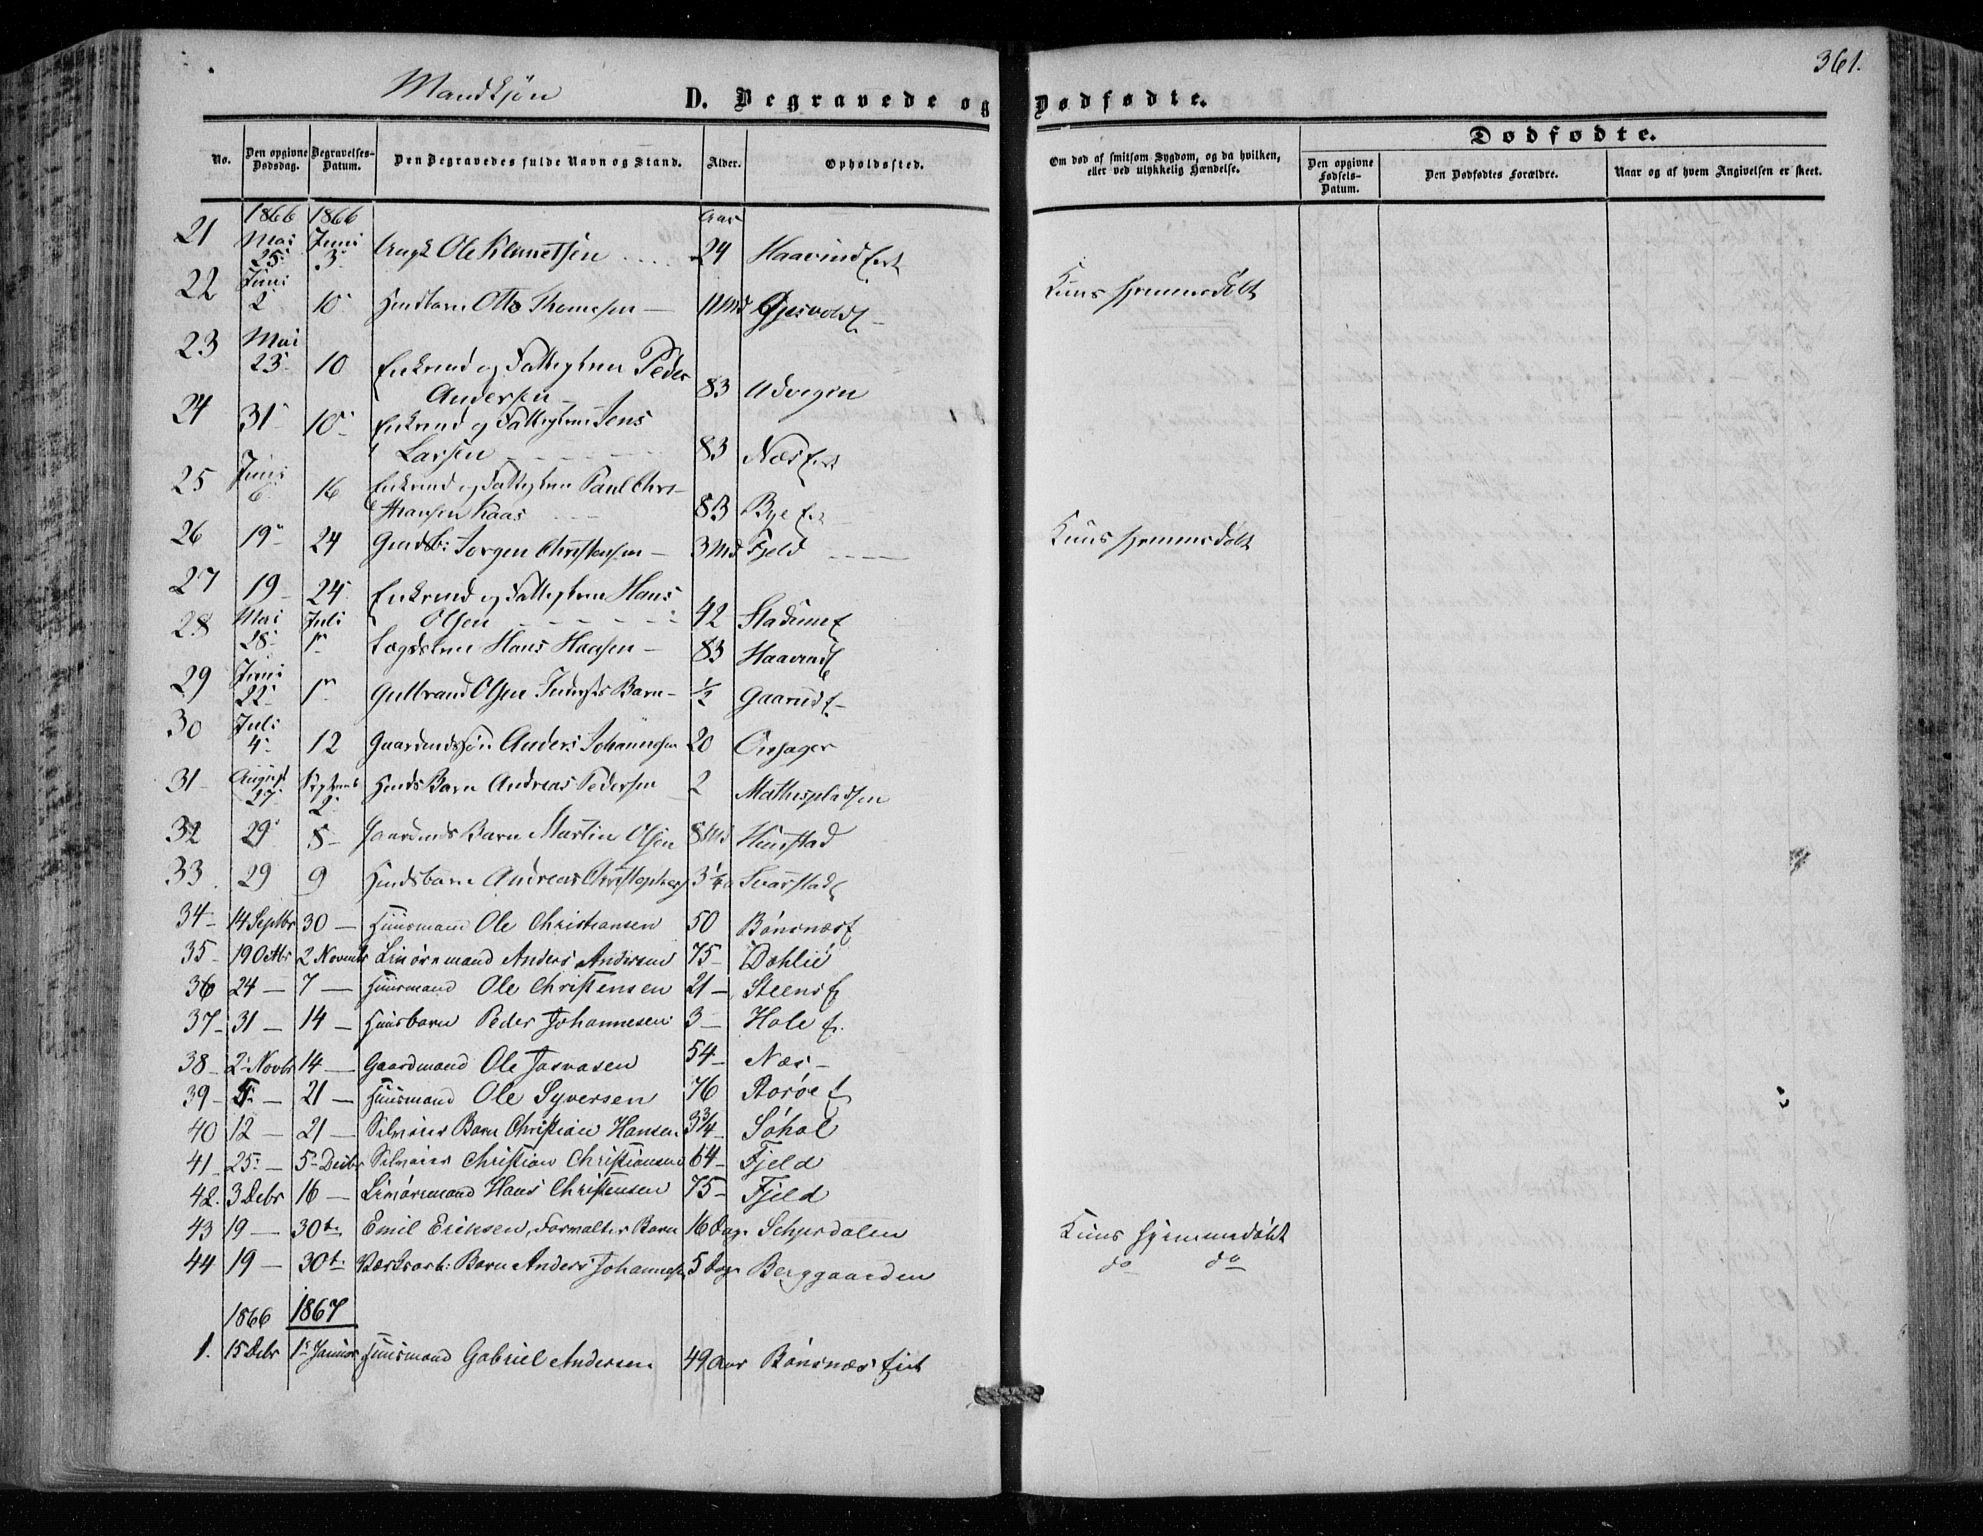 361.
Mandkjøn
D. Begravede og Dødfødte.
Dødfødte.
No. Den opgivne Dødsdag. Begravelses-Datum. Den Begravedes fulde Navn og Stand. Alder. Opholdssted. Om død af smitsom Sygdom, og da hvilken, eller ved ulykkelig Hændelse. Den opgivne Fødsels-Datum. Den Dødfødtes Forældre. Naar og af hvem Angivelsen er skeet.
1866 1866 Aar
21 Mai 25 Juni 3 Ungk Ole Klemetsen 24 Haavind
22 Juni 2 10 Otto Thomesen 11 Md Gjesvold Kuns hjemmedøbt
23 Mai 23 10 Enkemd og Fattiglem Peder
Andersen 83 Udvegen
24 31 10 Enkemd og Fattiglem Jens
Larsen 83 Næs
25 Juni 6 16 Enkemd og Fattiglem Paul Chri-
stiansen Kaas 83 Bye
26 19 24 Gmdsb: Jørgen Christensen 3 Md Fjeld Kuns hjemmedøbt
27 19 24 Enkemd og Fattiglem Hans
Olsen 42 Stadum
28 Mai 28 Juli 1 Lægdslem Hans Hansen 83 Haavind
29 Juni 22 1 Gulbrand Olsen Barn ½ Gaarud
30 Juli 4 12 Gaardmdssøn Anders Johannesen 20 Onsager
31 August 27 Septemb 2 Hmds Barn Andreas Pedersen 2 Mathispladsen
32 29 8 Gaardmds Barn Martin Olsen 8 Md Hunstad
33 29 9 Hmdsbarn Andreas Christophers 3 Svarstad
34 14 Septbr 30 Huusmand Ole Christiansen 50 Bønsnæs
35 19 Octbr 2 Novemb Anders Andersen 75 Dæhlie
36 24 7 Huusmand Ole Christensen 21 Steens
37 31 14 Huusbarn Peder Johannesen 3 Hole
38 2 Novbr 14 Gaardmand Ole 54 Næs
39 21 Huusmand Ole Syversen 76 Rorøe
40 12 21 Selveier Barn Christian Hansen 3¾ Søhol
41 25 5 Decbr Selveier Christian Christiansen 64 Fjeld
42. 3 Debr 16 Hans Christensen 75 Fjeld
43 19 30te Emil Eriksen, Forvalter Barn 16 Dag. Schjerdalen Kuns hjemmedøbt
44 19 30t Værksarb: Barn Anders Johannesen 5 Dage Berggaarden do do
1866 1867
1. 15 Debr 1 Januar Huusmand Gabriel Andersen 49 Aar Bønsnæs Eiet